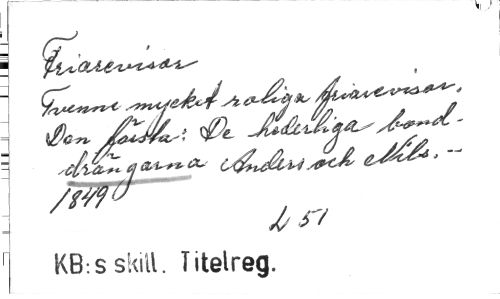 Friarevisor
Tvenne mycket roliga friarevisor.
Den första: De hederliga bond-
drängarna Anders och Nils. --
1849
L 51
KB:s skill. Titelreg.